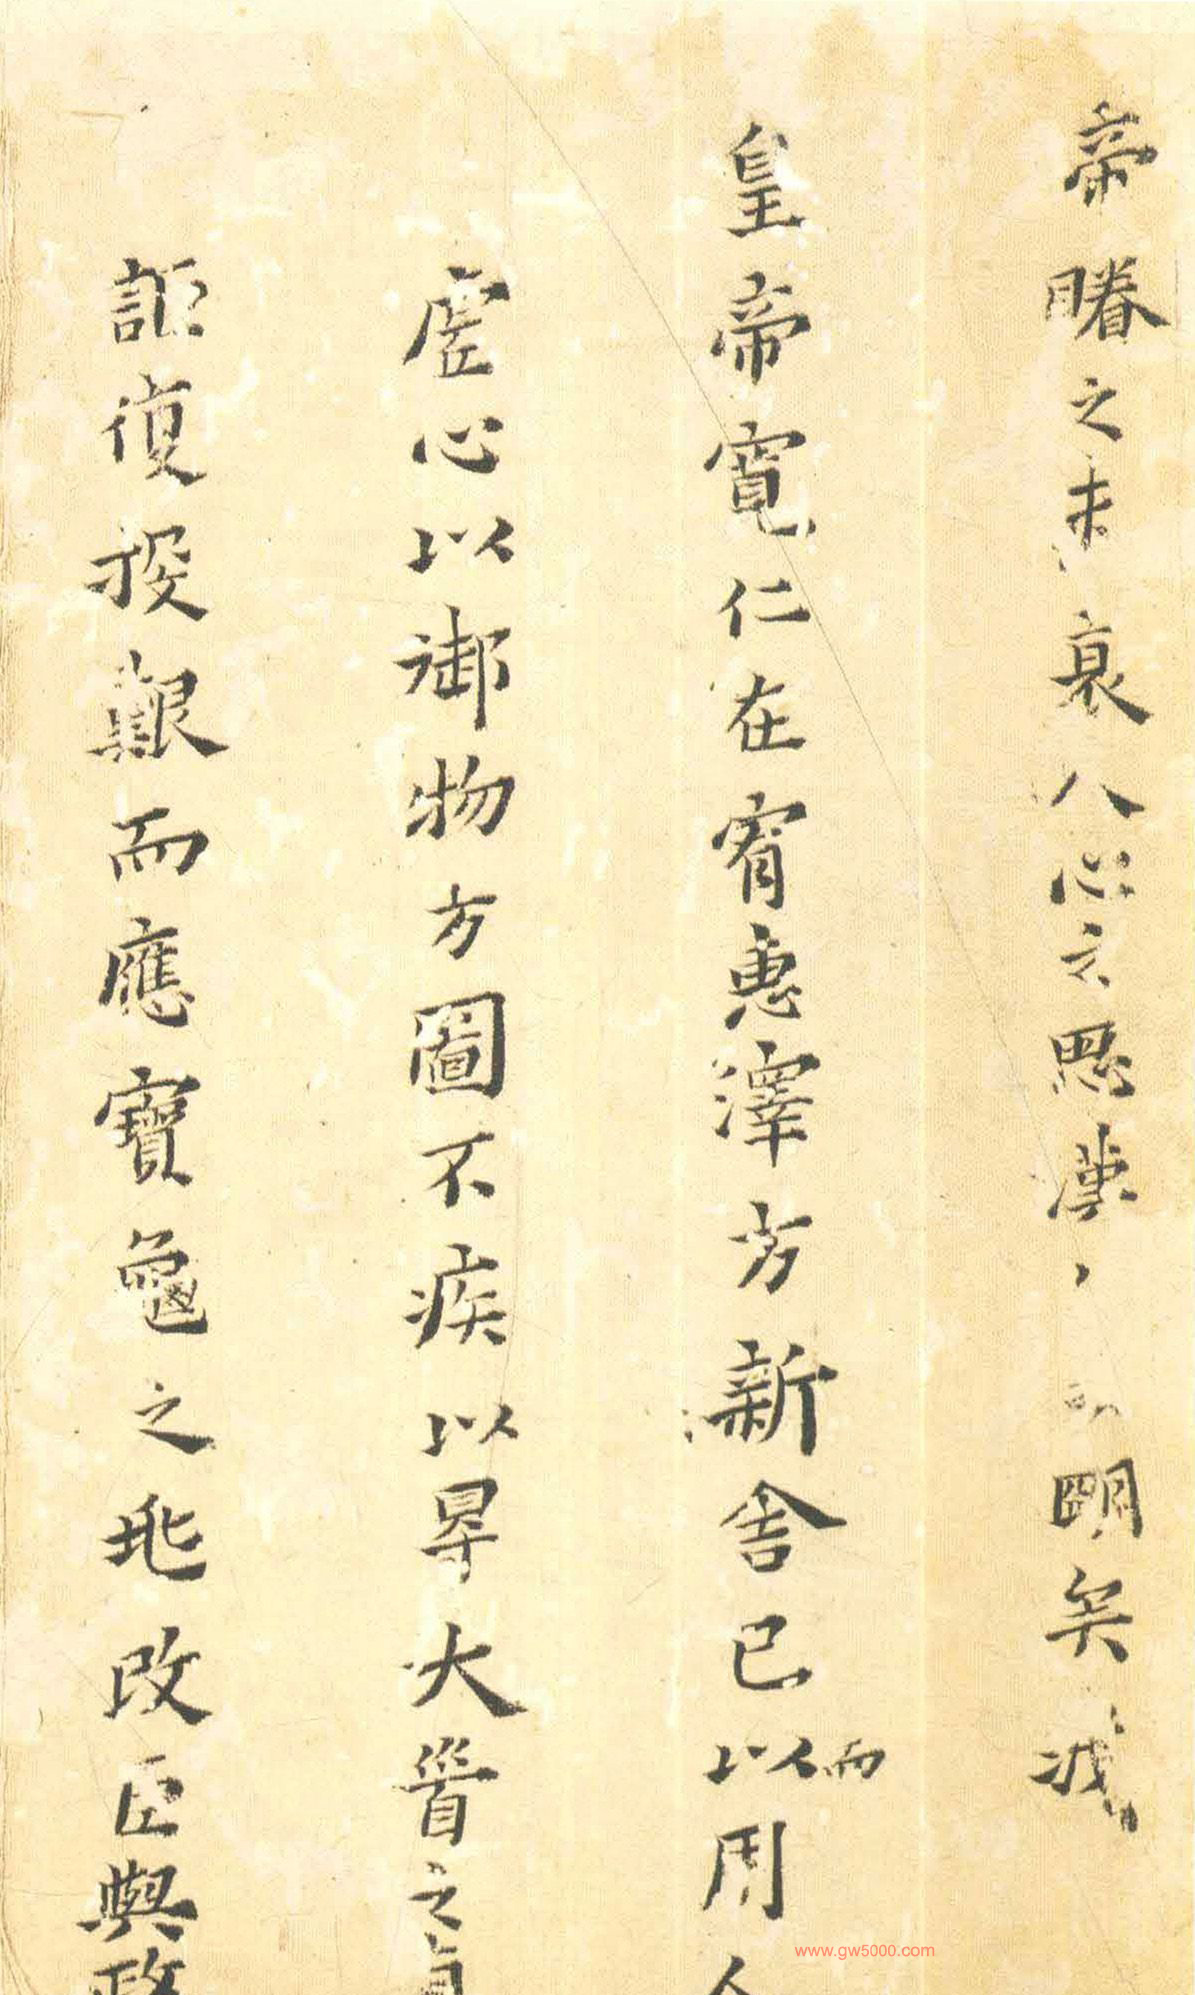 帝睠之未衰人心之思漢明矣
皇帝寬仁在宥惠澤方新舍已以而用人
虛心以御物方圖不疾以旱大晉之
詎復投艱而應寶龜之兆改臣與政
www.gw5000.com